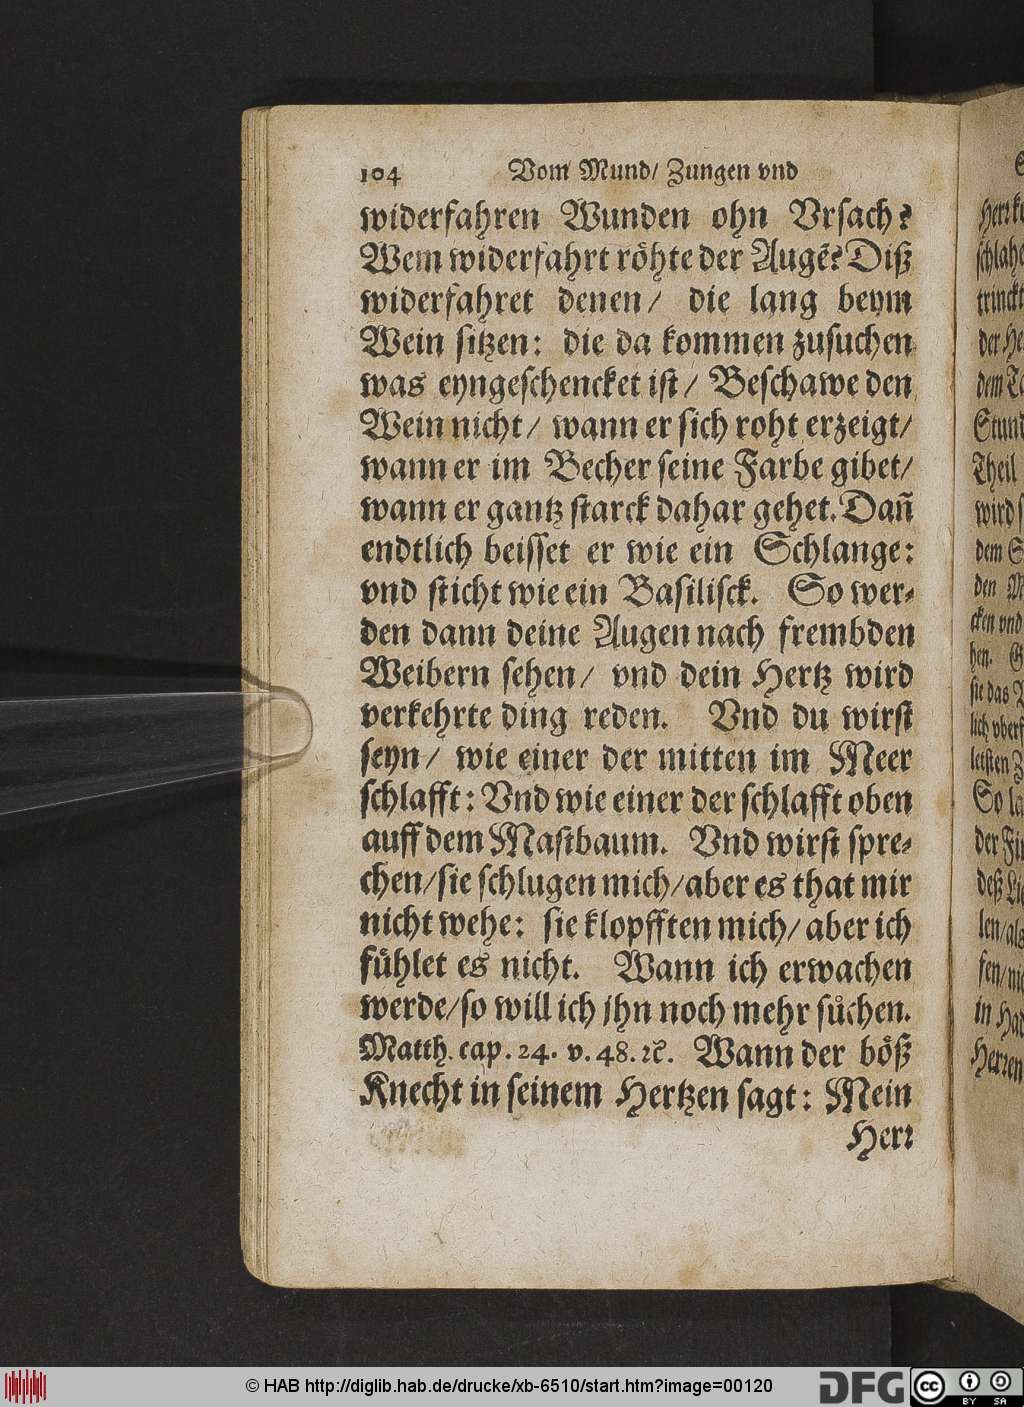 104 Vom Mund/ Zungen vnd
widerfahren Wunden ohn Vrsach?
Wem widerfahrt röhte der Augẽ? Diß
widerfahret denen/ die lang beym
Wein sitzen: die da kommen zusuchen
was eyngeschencket ist/ Beschawe den
Wein nicht/ wann er sich roht erzeigt/
wann er im Becher seine Farbe gibet/
wann er gantz starck dahar gehet. Dañ
endtlich beisset er wie ein Schlange:
vnd sticht wie ein Basilisck. So wer-
den dann deine Augen nach frembden
Weibern sehen/ vnd dein Hertz wird
verkehrte ding reden. Vnd du wirst
seyn/ wie einer der mitten im Meer
schlafft: Vnd wie einer der schlafft oben
auff dem Mastbaum. Vnd wirst spre-
chen/ sie schlugen mich/ aber es that mir
nicht wehe: sie klopfften mich/ aber ich
fühlet es nicht. Wann ich erwachen
werde/ so will ich jhn noch mehr suchen.
Matth. cap. 24. v. 48. ꝛc. Wann der böß
Knecht in seinem Hertzen sagt: Mein
Herr
© HAB http://diglib.hab.de/drucke/xb-6510/start.htm?image=00120
DFG
cc BY SA